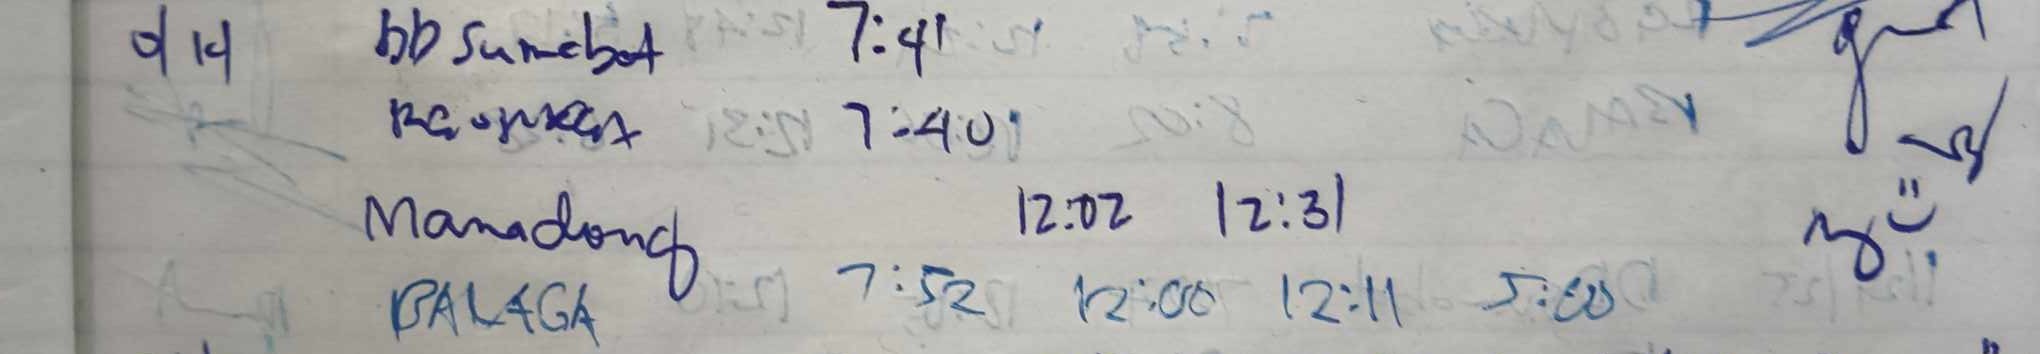 d 14 bb sumabat 7:41
7:40
Manadong 12:02 12:31
BALAGA 7:52 12:00 12:11 5:00